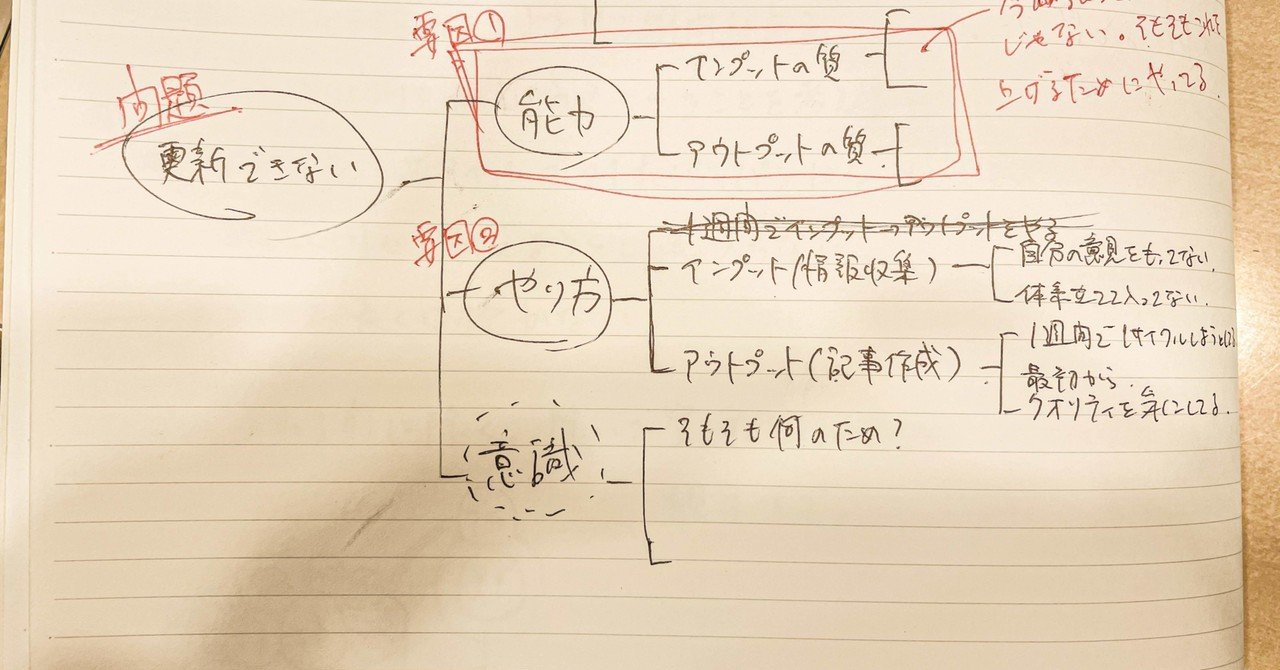 要因①
じゃない。そもそもこれを
上げるためにやってる.
問題
更新できない
能力
インプットの質
アウトプットの質
要因②
やり方
1週間でインプット→アウトプットをやる
インプット(情報収集)
自分の意見をもってない.
体系立てて入ってない.
アウトプット(記事作成)
1週間で1サイクルしようとしてる
最初から.
クオリティを気にしてる.
意識
そもそも何のため?